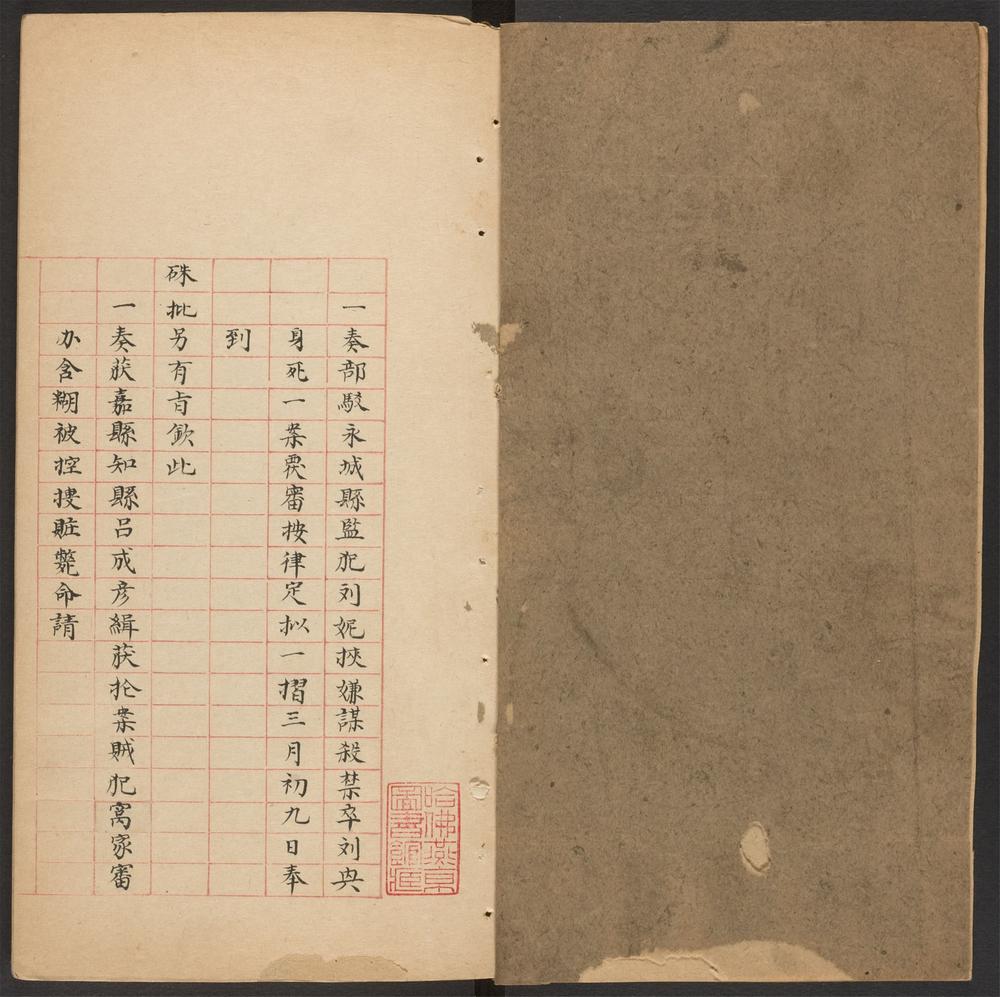 一奏部駁永城縣監犯刘妮挾嫌謀殺禁卒刘典
身死一案覆審按律定拟一摺三月初九日奉
到
硃批另有旨欽此
一奏获嘉縣知縣吕成彦緝获抢案贼犯窩家審
办含糊被控搜賍斃命請
哈佛燕京
圖書館藏